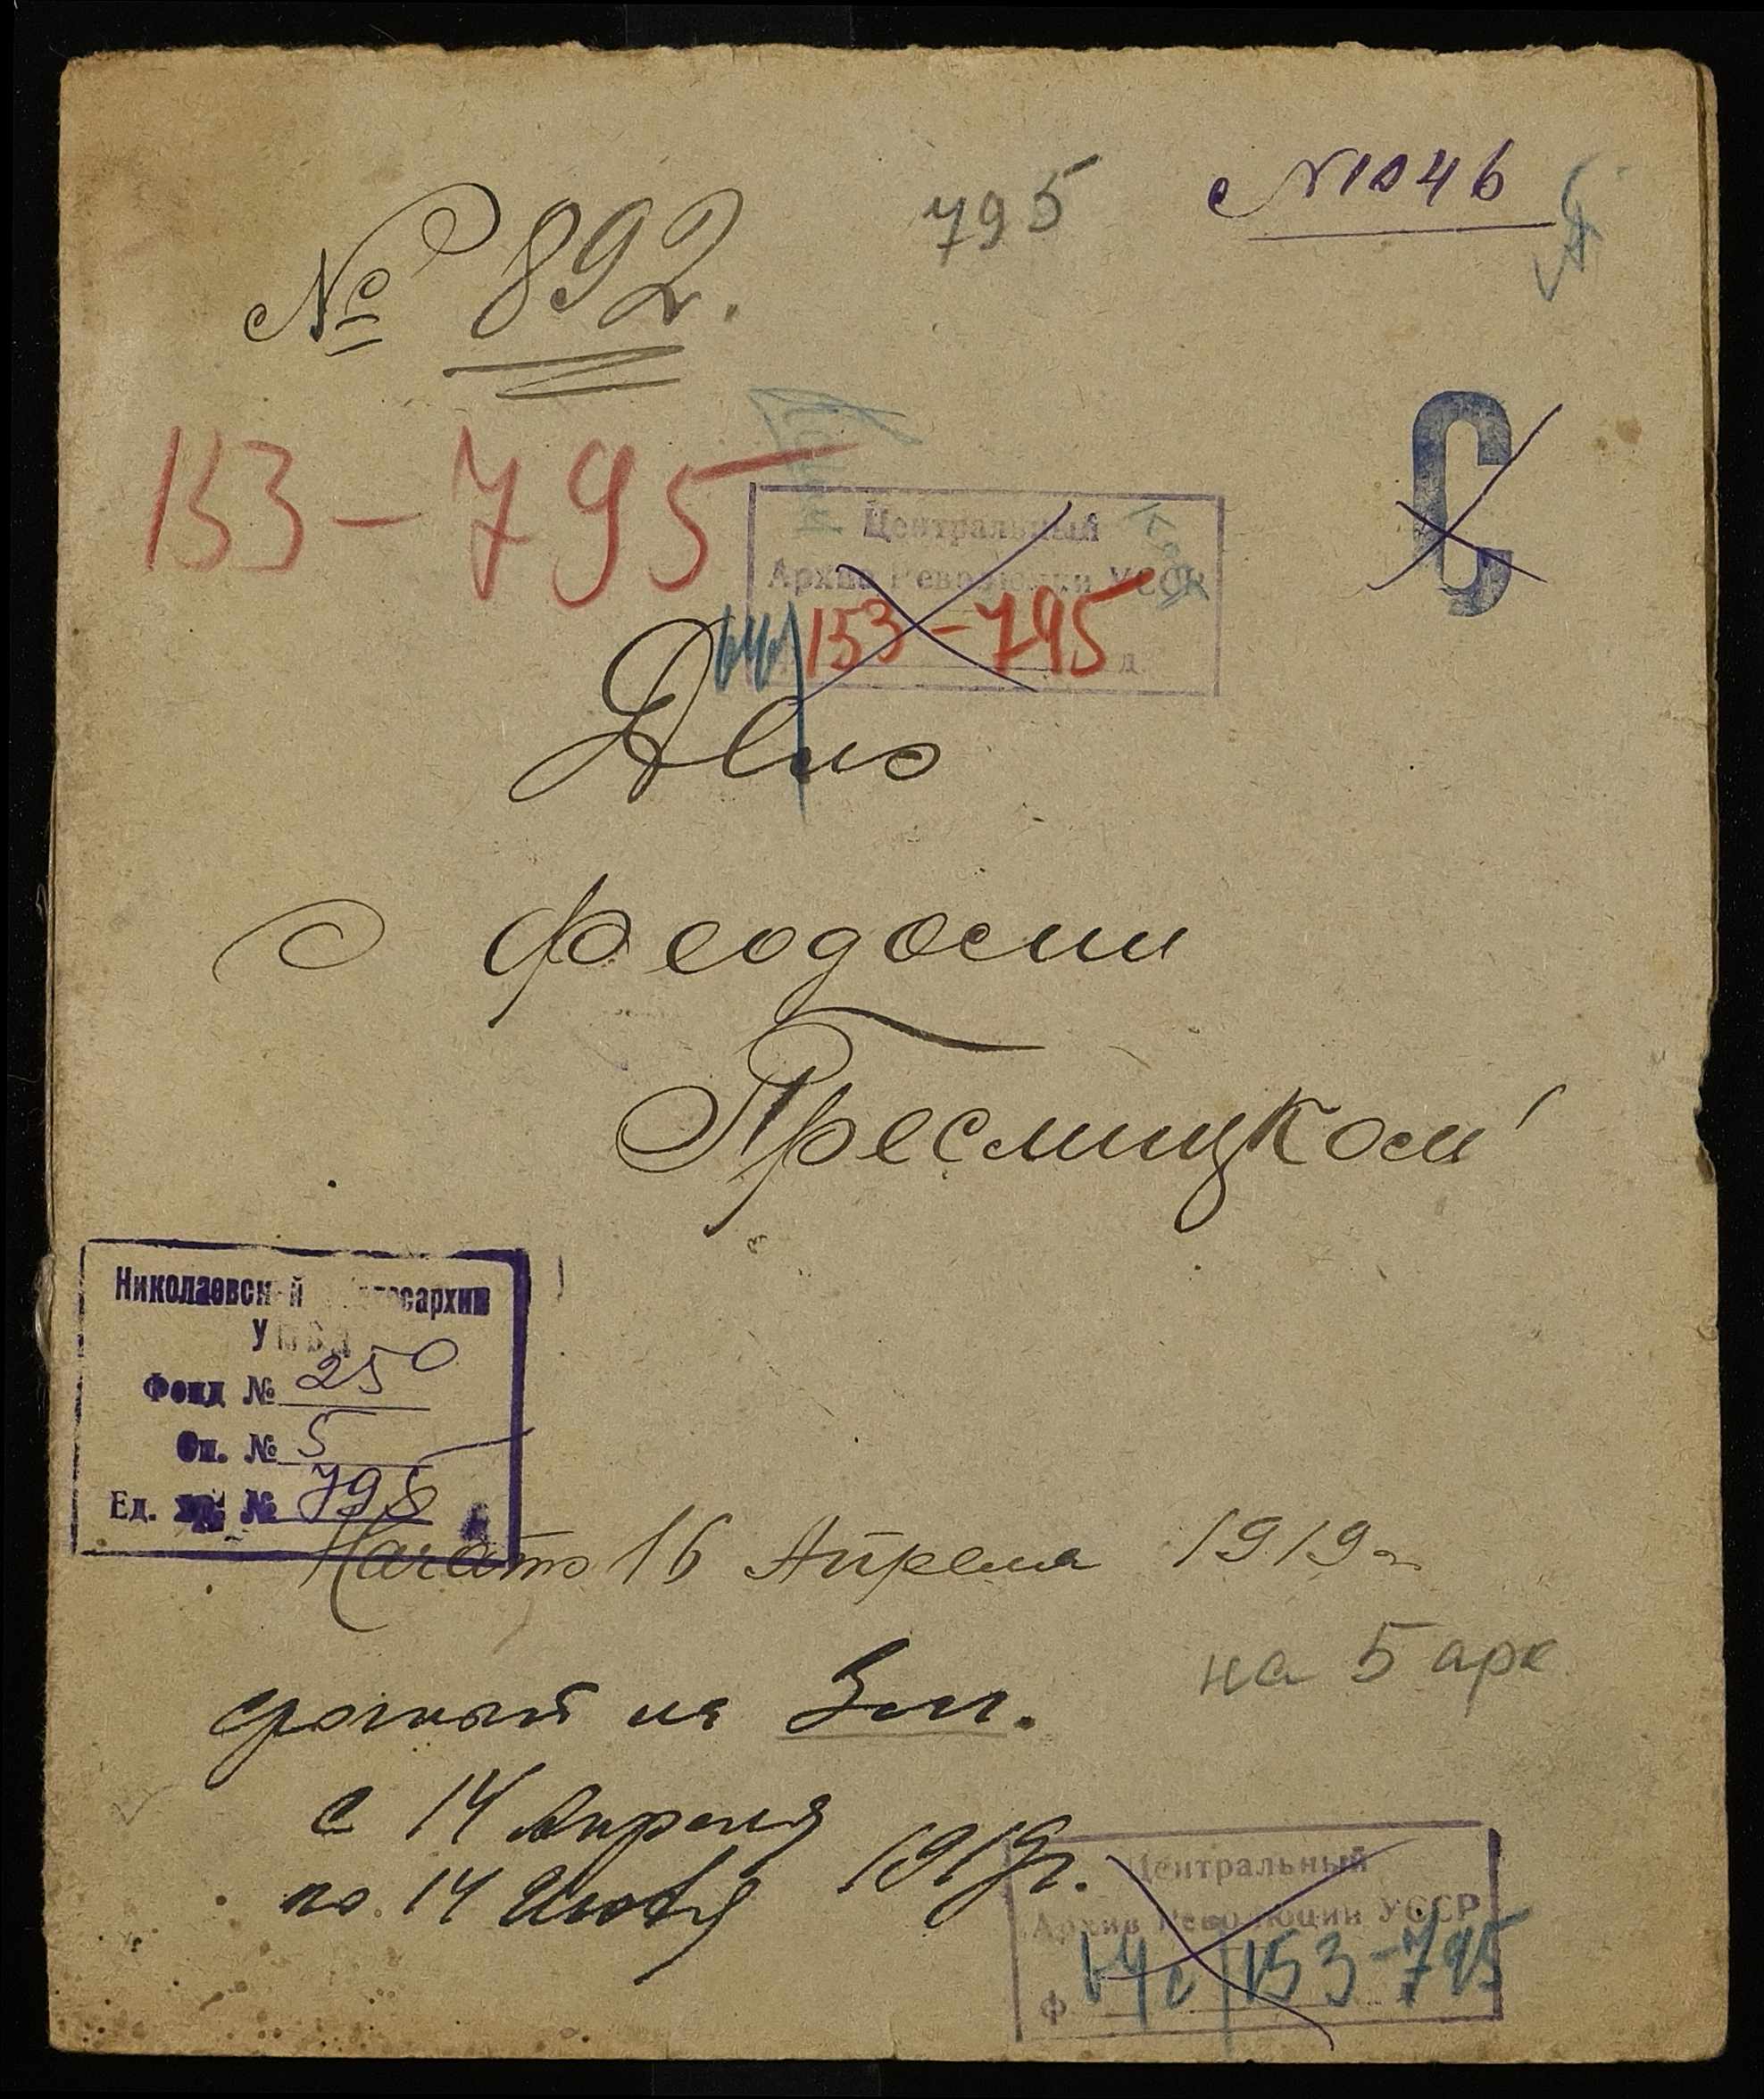 № 892.
795
№1046
153-795
С
Центральный
Архив Революции УССР
153-795
д.
Дело
О Феодосии
Пресмицком
Николаевский госархив
У
Фонд № 250
Оп. № 5
Ед. хр. № 795
Начато 16 Апреля 1919 г.
срочный на 3 м.
на 5 арк
с 14 Апреля
по 14 Июля 1919 г.
Центральный
Архив Революции УССР
Ф 153-795